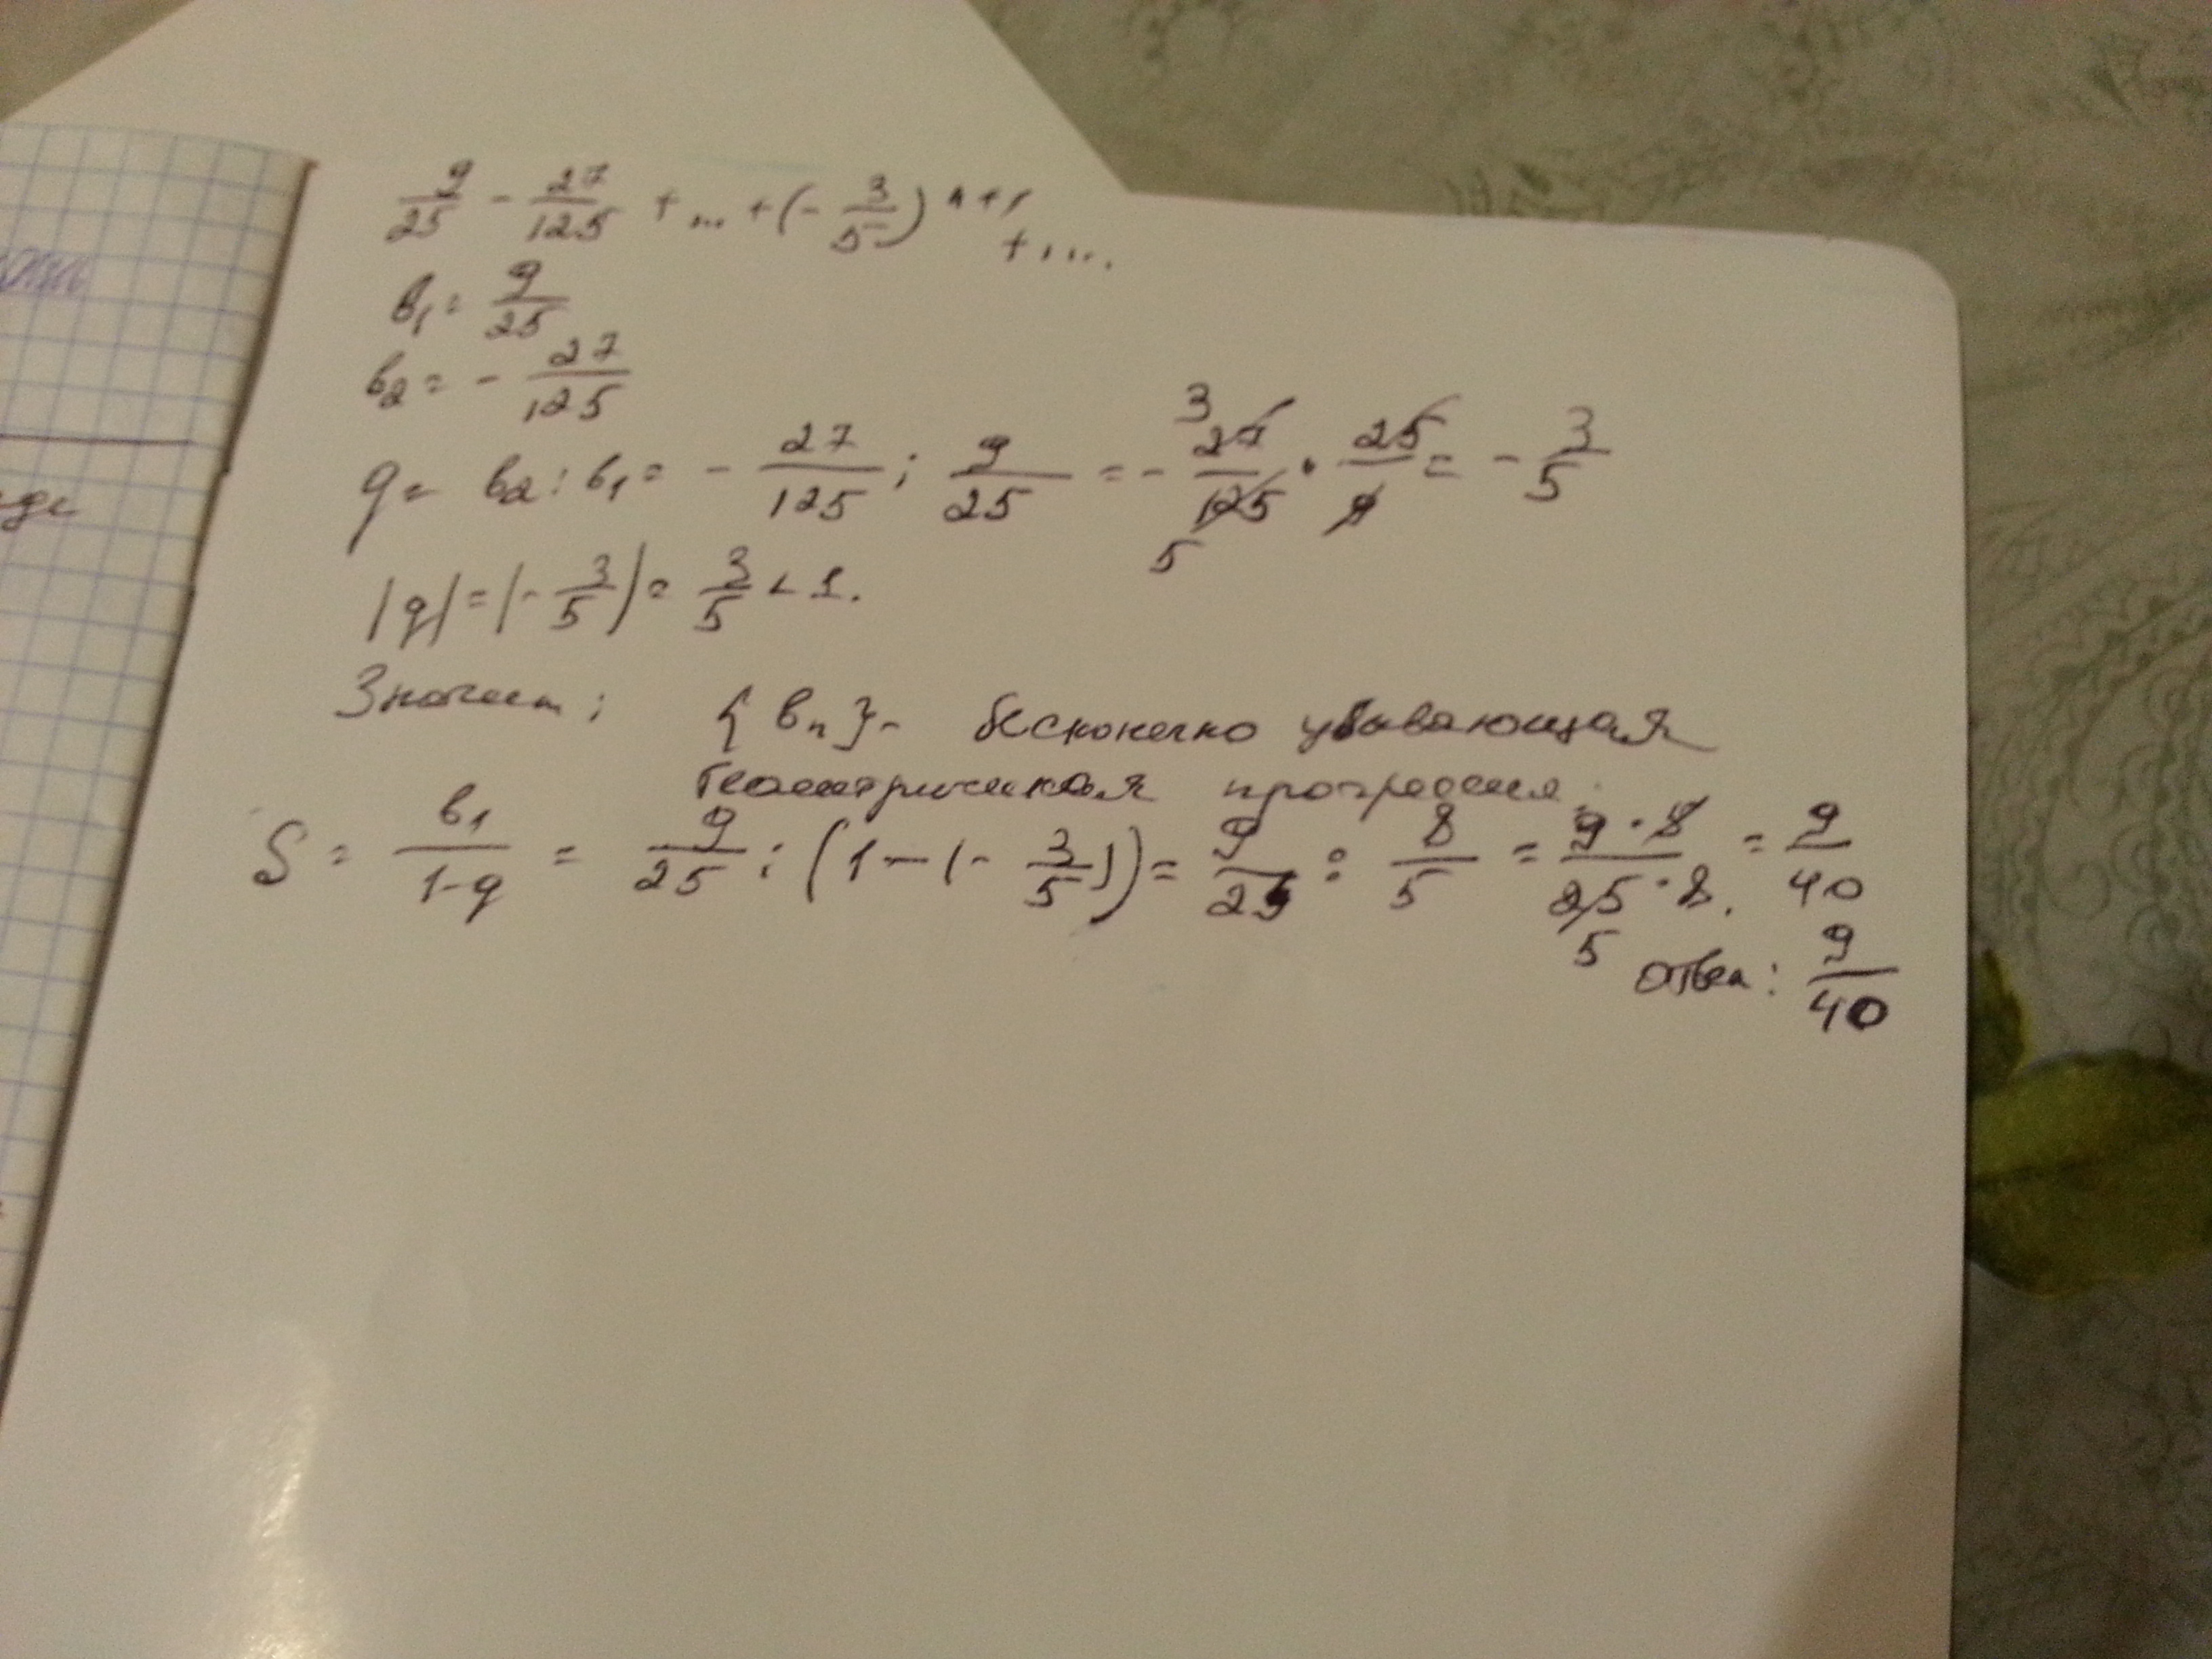 9/25 - 27/125 + ... + (- 3/5)^n+1 + ....
b₁ = 9/25
b₂ = - 27/125
q = b₂ : b₁ = - 27/125 : 9/25 = - 27/125 · 25/9 = - 3/5
3
5
|q| = |- 3/5| = 3/5 < 1.
Значит: {bₙ} - бесконечно убывающая
геометрическая прогрессия.
S = b₁/1-q = 9/25 : (1 - (- 3/5)) = 9/25 : 8/5 = 9·5/25·8 = 9/40
5
Ответ: 9/40